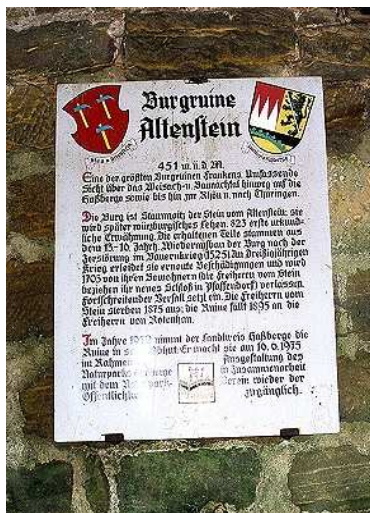 Burgruine
Altenstein
451 m.ü.d.M.
Eine der größten Burgruinen Frankens. Umfassende
Sicht über das Weisach-u. Baunachtal hinweg auf die
Haßberge sowie bis hin zur Rhön u. nach Thüringen.
Die Burg ist Stammsitz der Stein vom Altenstein; sie
wird später würzburgisches Lehen. 823 erste urkund-
liche Erwähnung. Die erhaltenen Teile stammen aus
dem 13.-16. Jahrh. Wiederaufbau der Burg nach der
Zerstörung im Bauernkrieg (1525). Im Dreißigjährigen
Krieg erleidet sie erneute Beschädigungen und wird
1703 von ihren Bewohnern (die Freiherrn vom Stein
beziehen ihr neues Schloß in Pfaffendorf) verlassen.
Fortschreitender Verfall setzt ein. Die Freiherrn vom
Stein sterben 1875 aus; die Ruine fällt 1895 an die
Freiherrn von Rotenhan.
Im Jahre nimmt der Landkreis Haßberge die
Ruine in Obhut. Er macht sie am 16.6.1975
im Rahmen Ausgestaltung des
Naturparks in Zusammenarbeit
mit dem Verein wieder der
zugänglich.